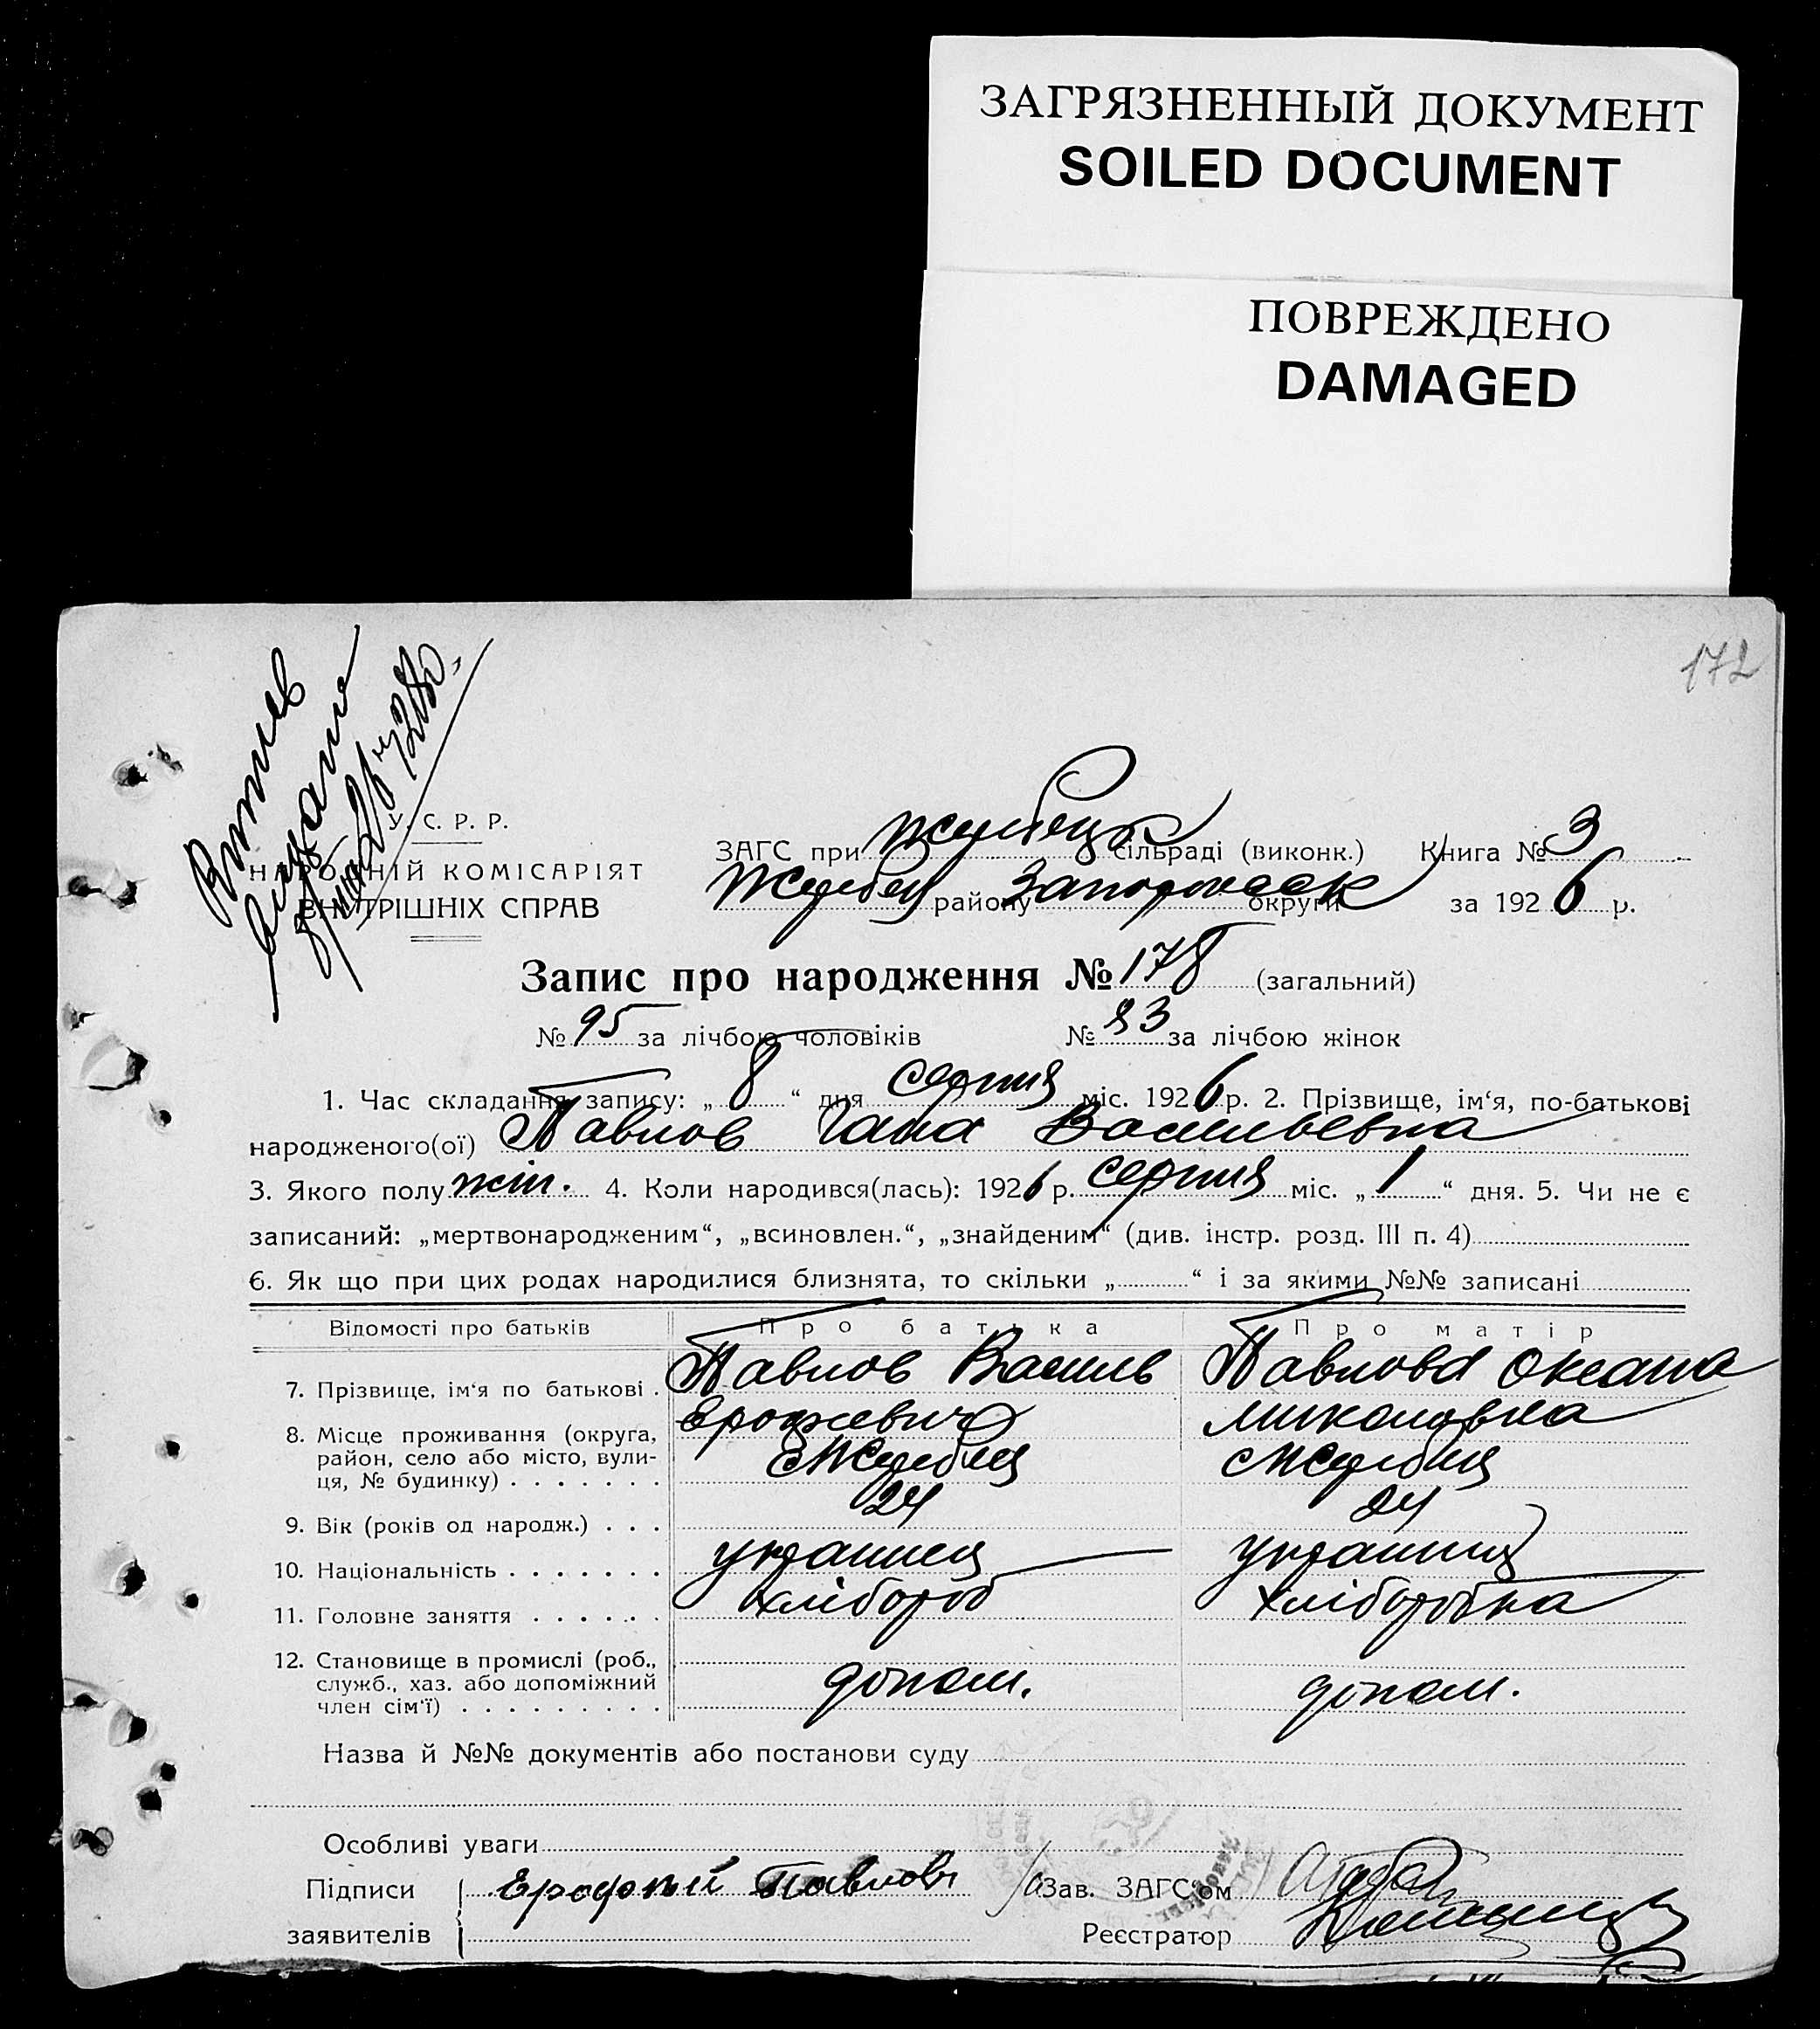 ЗАГРЯЗНЕННЫЙ ДОКУМЕНТ
SOILED DOCUMENT
ПОВРЕЖДЕНО
DAMAGED
172
Витяг
видано
У. С. Р. Р.
НАРОДНІЙ КОМІСАРІЯТ
ВНУТРІШНІХ СПРАВ
ЗАГС при Жеребецьк сільраді (виконк.) Книга № 3
Жеребец району Запорожск округи за 1926 р.
Запис про народження № 178 (загальний)
№ 95 за лічбою чоловіків № 83 за лічбою жінок
1. Час складання запису: „ 8 “ дня серпня міс. 1926 р. 2. Прізвище, ім‘я, по-батькові
народженого(ої) Павлов Гана Васильевна
3. Якого полу жін. 4. Коли народився(лась): 1926 р. серпня міс. „ 1 “ дня. 5. Чи не є
записаний: „мертвонародженим“, „всиновлен.“, „знайденим“ (див. інстр. розд. III п. 4)
6. Як що при цих родах народилися близнята, то скільки „ “ і за якими №№ записані
Відомості про батьків Про батька Про матір
7. Прізвище, ім‘я по батькові . Павлов Василь Ерофеевич Павлова Оксана Миколовна
8. Місце проживання (округа,
район, село або місто, вули-
ця, № будинку) . . . . . . . с Жеребец с Жеребец
9. Вік (років од народж.) . . . 24 24
10. Національність . . . . . . . украинец украинц
11. Головне заняття . . . . . . хлібороб хліборобка
12. Становище в промислі (роб.,
служб., хаз. або допоміжний
член сім‘ї) . . . . . . . . . допом. допом.
Назва й №№ документів або постанови суду
Особливі уваги
Підписи Ерофей Павлов Зав. ЗАГС‘ом
заявителів Реєстратор